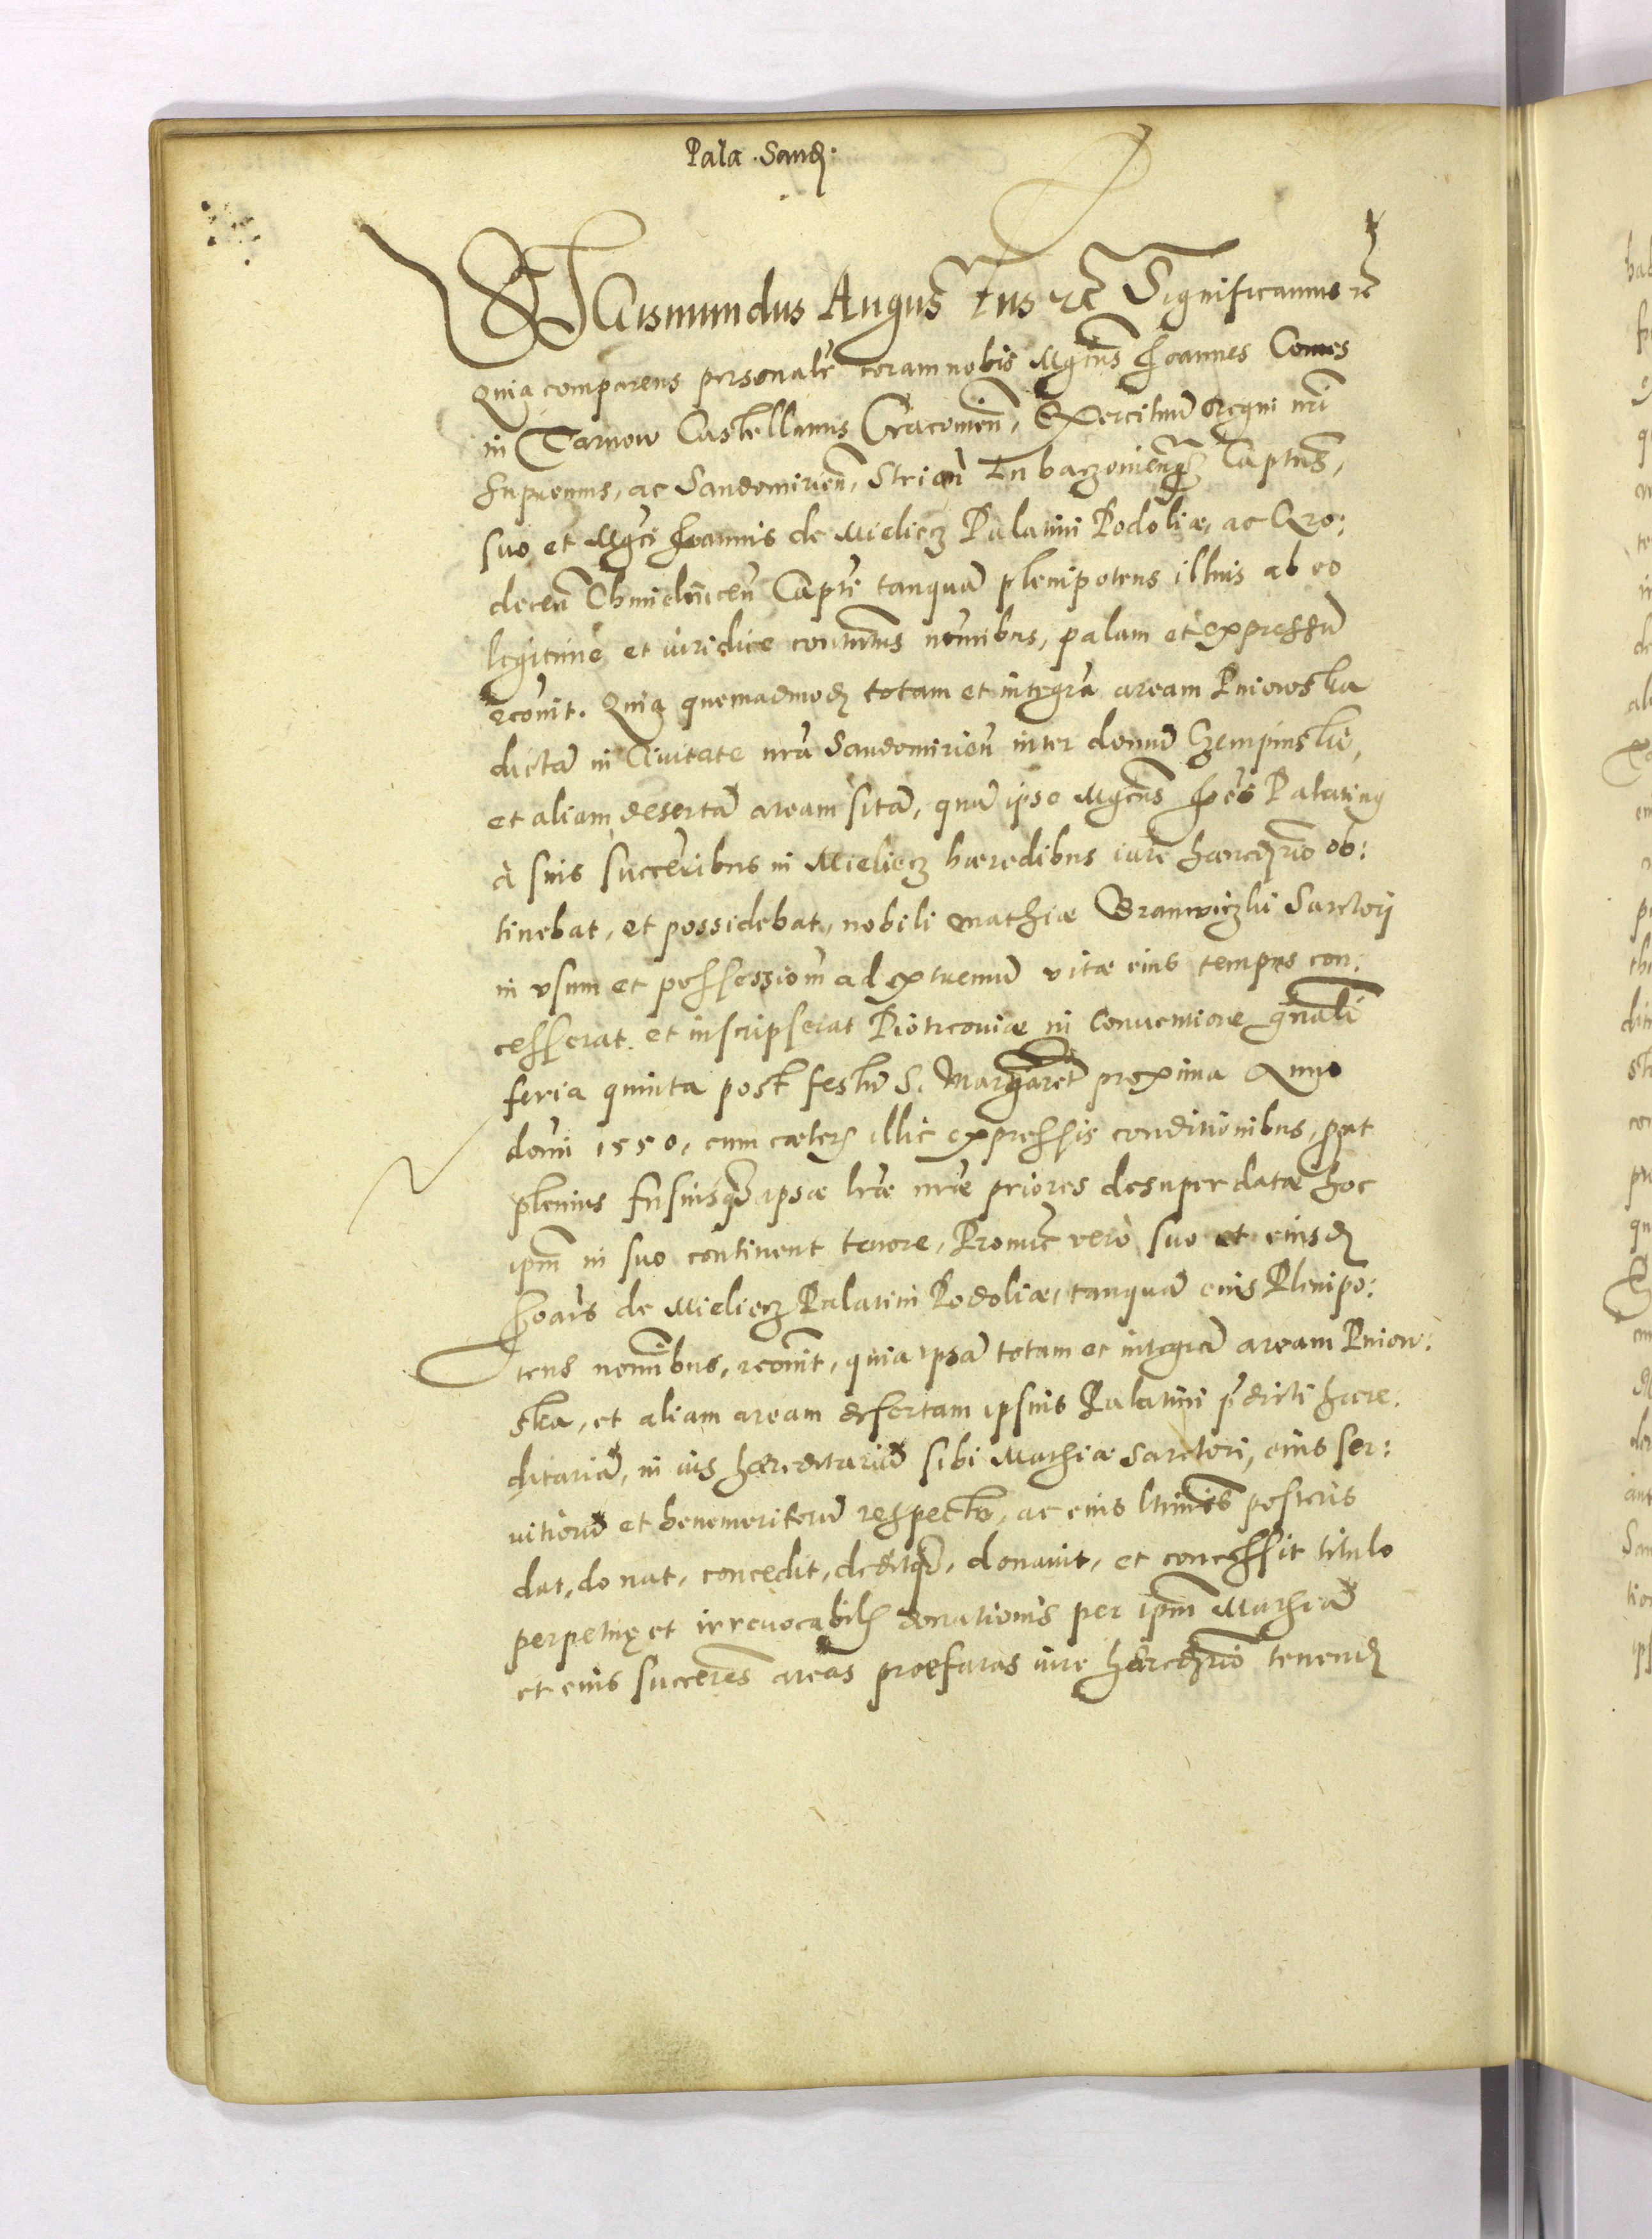 Pala. Sand.
SIgismundus Augustus etc. Significamus etc
Quia comparens personalr̃ coram nobis Mgcus Joannes Comes
in Tarnow Castellanus Cracovien̄, Exercituū Regni nr̃i
supremus, ac Sandomirien̄, Strien̄ Lubaczovien̄q̄ Captus,
suo et Mgci Joannis de Mieliecz Palatini Podoliæ, ac Gro:
decen̄ Chmielnicen̄ Captr̄ tanquā plenipotens illius ab eo
legitime et iuridice contutus noīnibus, palam et expressū
recōnit. Quia quemadmod totam et integrā aream Pniowska
dictā in Ciuitate nrā Sandomirien̄ inter domū Czempinskie,
et aliam desertā aream sitā, quā ipse Mgcus Joēs Palating
à suis succeribus in Mieliecz hæredibus iure hærederio ob:
tinebat, et possidebat, nobili Mathiæ Branwiczki Sarctorj
in vsum et possessionē ad extremū vitæ eius tempus con:
cesserat et inscripserat Piotrcouiæ in Conuentione gn̄ali
feria quinta post festū S. Margaret proxima Anno
domi 1550, cum cæteris illic expressis conditionibus, put
plenius fusiusq̄ ipsæ lræ nræ priores desuper datæ hoc
ipm in suo continent tenore, Pronunc verò suo et eiusd
Joañis de Mieliecz Palatini Podoliæ, tanquā eius Plenipo:
tens nominibus, recōnit, quia ipsā totam et integrā aream Pniow:
ska, et aliam aream desertam ipsius Palatini p̄dicti hære:
ditariā, in ius hæreditariū sibi Mathiæ Sarctori, eius ser:
uitiorū et benemeritorū respectu, ac eius ltimis posteris
dat, donat, concedit, deditq̄, donauit, et concessit titulo
perpetuę et irreuocabilis donationis per ipm Mathiā
et eius succeres areas præfatas iure hærederio tenend